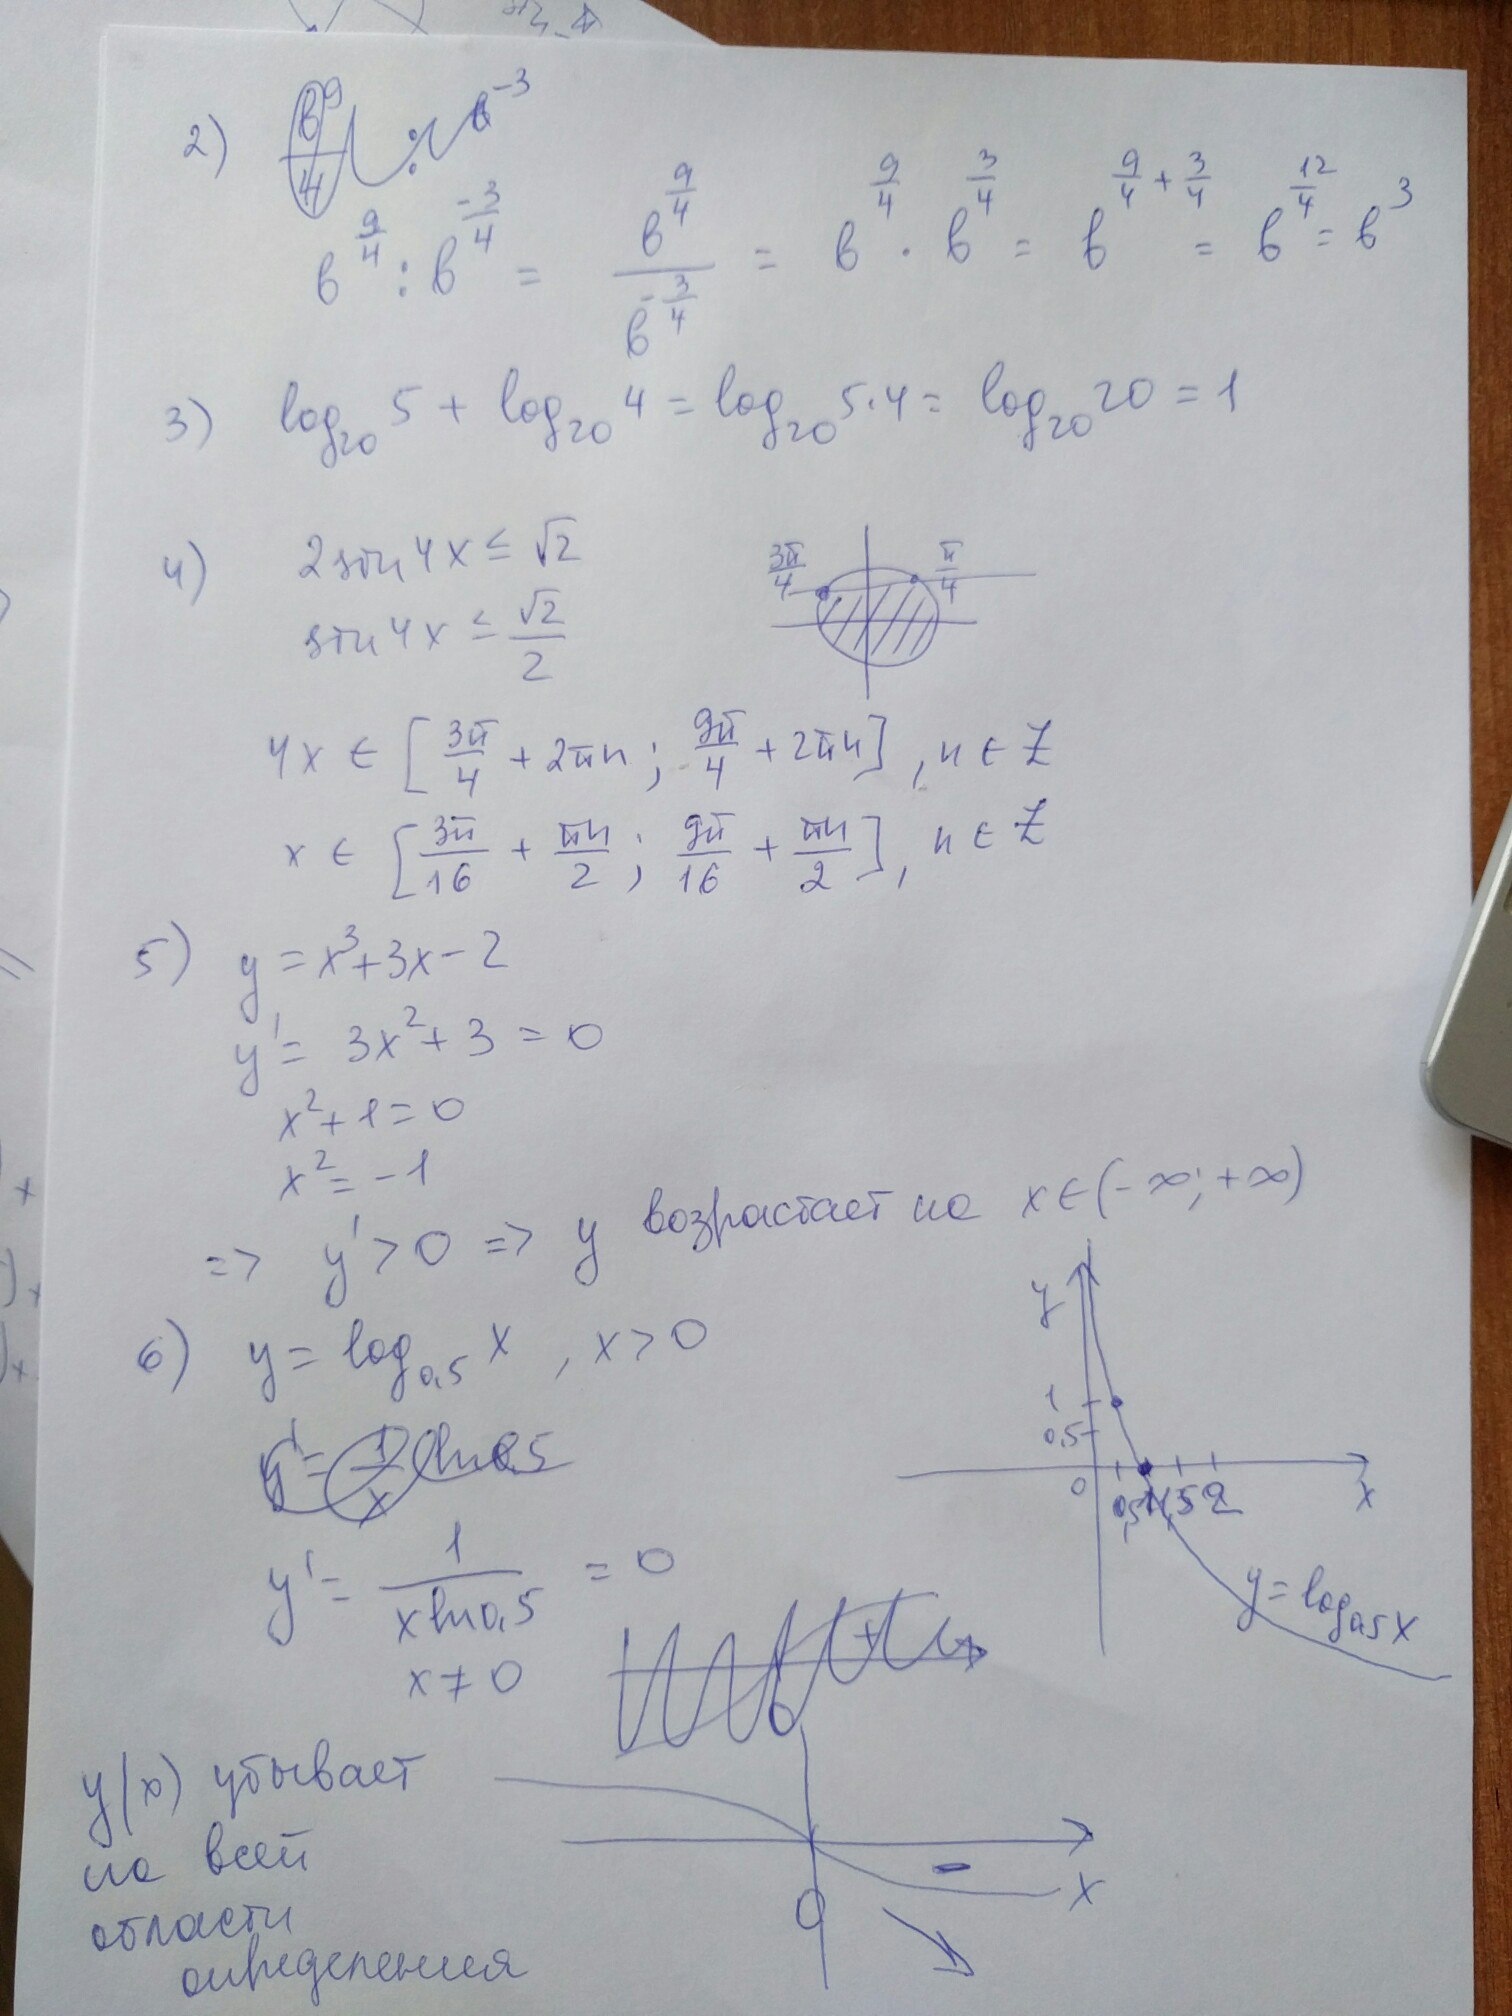 2) в^(9/4) : в^(-3/4) = в^(9/4) / в^(-3/4) = в^(9/4) · в^(3/4) = в^(9/4 + 3/4) = в^(12/4) = в^3
3) log₂₀ 5 + log₂₀ 4 = log₂₀ 5·4 = log₂₀ 20 = 1
4) 2 sin 4x ≤ √2
sin 4x ≤ √2/2
3π/4 π/4
4x ∈ [3π/4 + 2πn ; 9π/4 + 2πn], n ∈ Z
x ∈ [3π/16 + πn/2 ; 9π/16 + πn/2], n ∈ Z
5) y = x³ + 3x - 2
y' = 3x² + 3 = 0
x² + 1 = 0
x² = -1
=> y' > 0 => y возрастает на x ∈ (-∞; +∞)
6) y = log₀,₅ x , x > 0
y' = 1/(x ln 0,5) = 0
x ≠ 0
y
1
0,5
0 0,5 1 1,5 2 x
y = log₀,₅ x
y(x) убывает
на всей
области
определения
0 - x